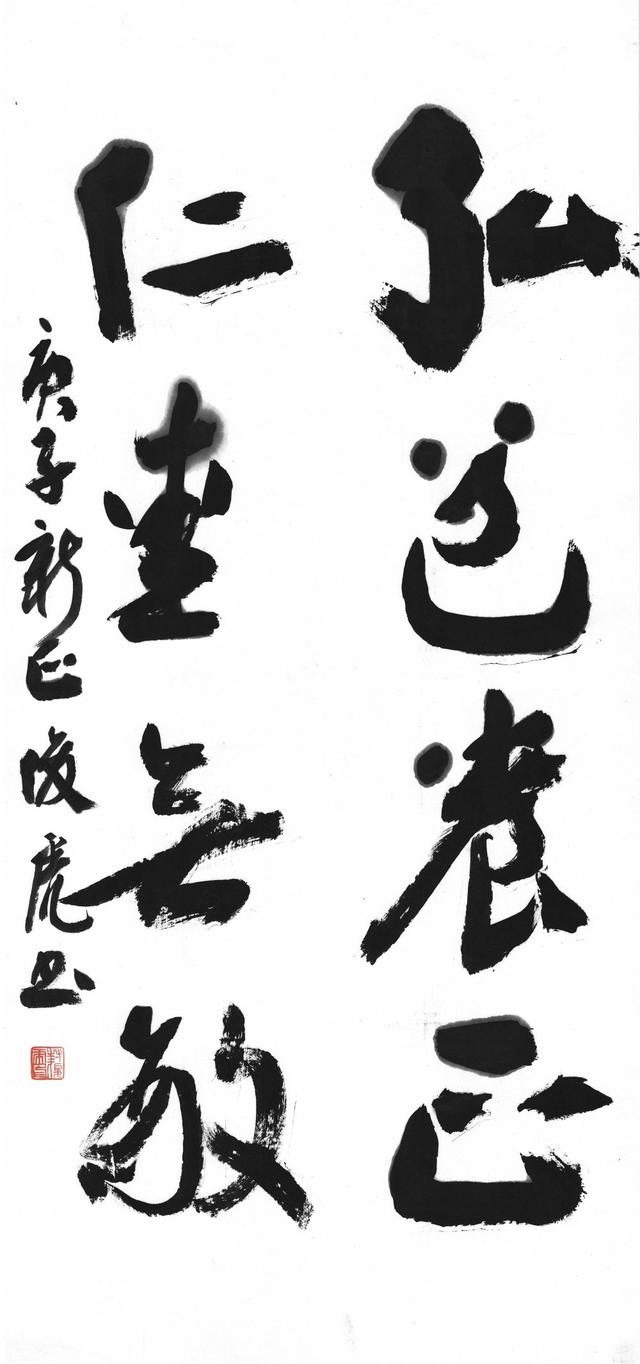 弘道養正
仁無
庚子新正俊虎书